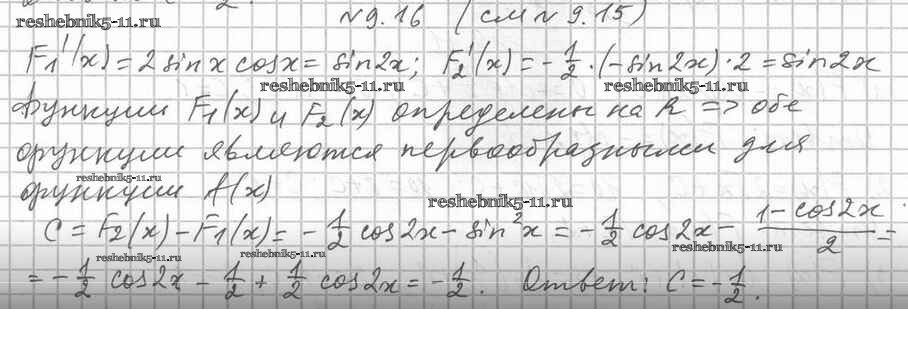 N 9.16 (см N 9.15)
reshebnik5-11.ru
F₁'(x) = 2 sin x cos x = sin 2x; F₂'(x) = -1/2 · (-sin 2x) · 2 = sin 2x
reshebnik5-11.ru reshebnik5-11.ru
Функции F₁(x) и F₂(x) определены на R => обе
функции являются первообразными для
reshebnik5-11.ru
функции f(x)
reshebnik5-11.ru
C = F₂(x) - F₁(x) = -1/2 cos 2x - sin² x = -1/2 cos 2x - (1 - cos 2x)/2 =
reshebnik5-11.ru reshebnik5-11.ru reshebnik5-11.ru
= -1/2 cos 2x - 1/2 + 1/2 cos 2x = -1/2. Ответ: C = -1/2.